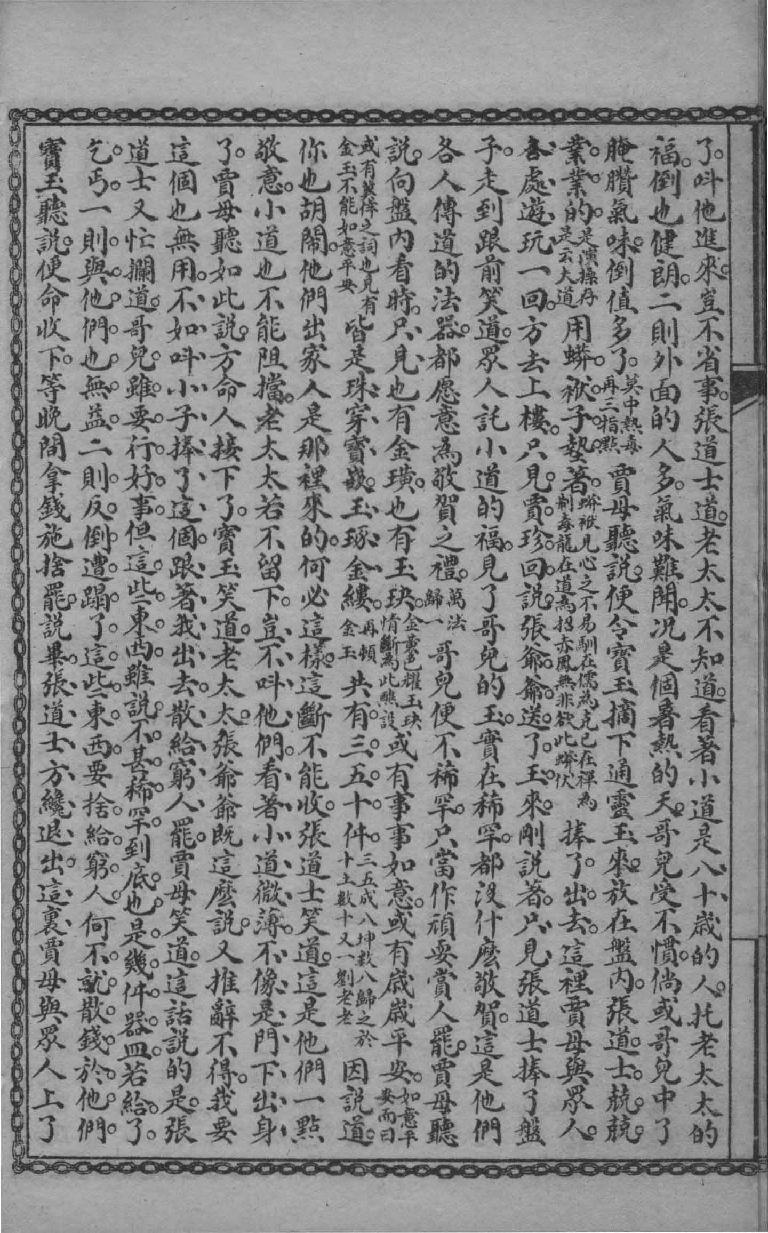 了叫他進來豈不省事張道士道老太太不知道看着小道是八十歲的人托老太太的
福倒也健朗二則外面的人多氣味難聞况是個暑熱的天哥兒受不慣倘或哥兒中了
腌臢氣味倒值多了莫中熱毒再三指點賈母聽說便令寶玉摘下通靈玉來放在盤內張道士兢兢
業業的是演操存是云大道用蟒袱子墊著蟒袱見心之不易馴在儒為克己在禪為制毒龍在道為招赤鳳無非欲此蟒伏捧了出去這裡賈母與眾人
各處遊玩一回方去上樓只見賈珍回說張爺爺送了玉來剛說著只見張道士捧了盤
子走到跟前笑道眾人託小道的福見了哥兒的玉實在稀罕都沒什麼敬賀這是他們
各人傳道的法器都愿意為敬賀之禮萬法歸一哥兒便不稀罕只當作頑耍賞人罷賈母聽
說向盤內看時只見也有金璜也有玉玦金黃色耀玉玦情斷為此醮設或有事事如意或有歲歲平安如意平安而曰
或有某倖之詞也見有金玉不能如意平安皆是珠穿寶嵌玉琢金縷再頓金玉共有三五十件三五成八坤数八歸之於十土数十又一劉老老因說道
你也胡鬧他們出家人是那裡來的何必這樣這斷不能收張道士笑道這是他們一點
敬意小道也不能阻擋老太太若不留下豈不叫他們看著小道微薄不像是門下出身
了賈母聽如此說方命人接下了寶玉笑道老太太張爺爺既這麼說又推辭不得我要
這個也無用不如叫小子捧了這個跟著我出去散給窮人罷賈母笑道這話說的是張
道士又忙攔道哥兒雖要行好事但這些東西雖說不甚稀罕到底也是幾件器皿若給了
乞丐一則與他們也無益二則反倒遭蹋了這些東西要捨給窮人何不就散錢於他們
寶玉聽說便命收下等晚間拿錢施捨罷說畢張道士方纔退出這裏賈母與眾人上了